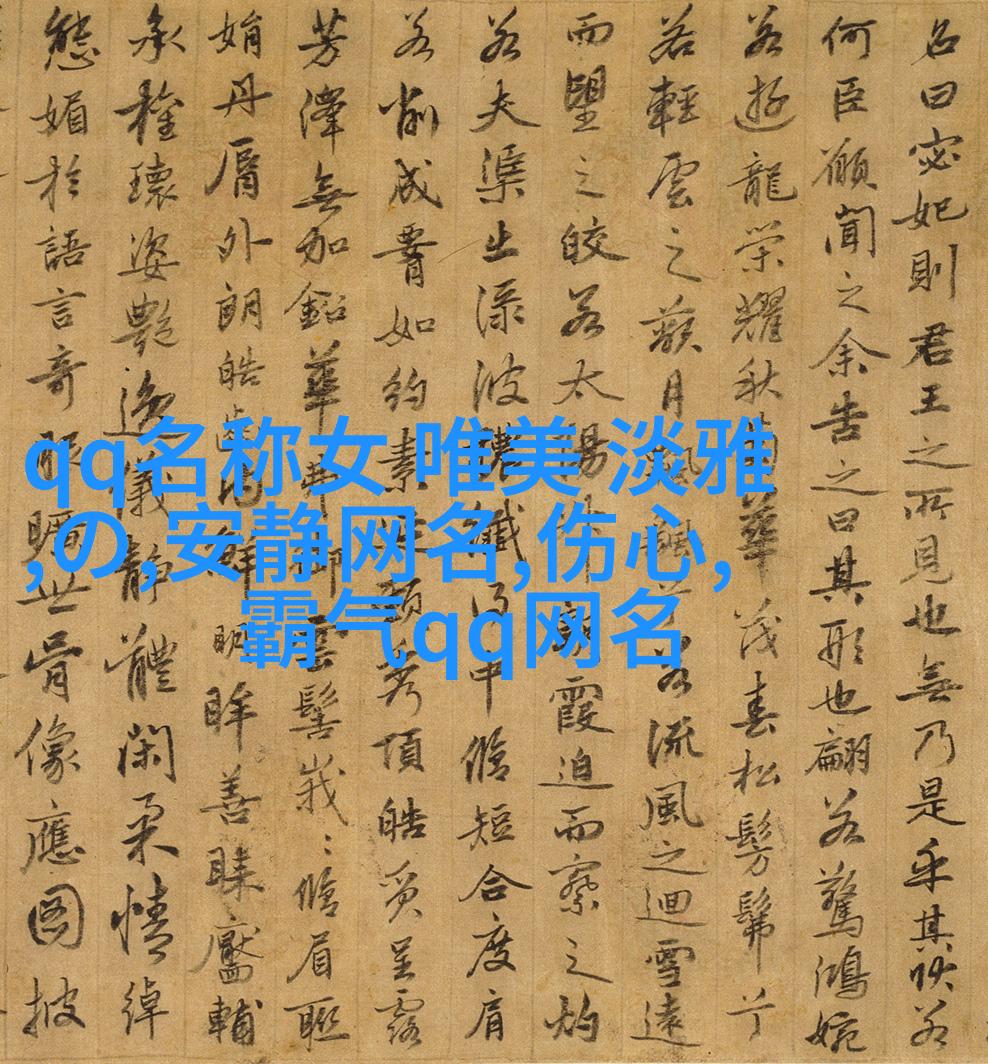 名曰宓妃則君王之所見也無乃是乎其狀若
何臣願聞之余告之曰其形也翩若驚鴻婉
若遊龍榮耀秋菊華茂春松髣髴兮
若輕雲之蔽月飄颻兮若流風之迴雪遠
而望之皎若太陽升朝霞迫而察之灼
若夫渠出淥波穠纖得中脩短合度肩
若削成腰如約素延頸秀項皓質呈露
芳澤無加鉛華弗御雲髻峩〻脩眉聯
娟丹脣外朗皓齒內鮮明眸善睞靨輔
承權瓌姿艷逸儀靜體閑柔情綽
態媚於語言奇服曠世骨像應圖披
qq名称女 唯美 淡雅
,の,安静网名,伤心,
霸气qq网名